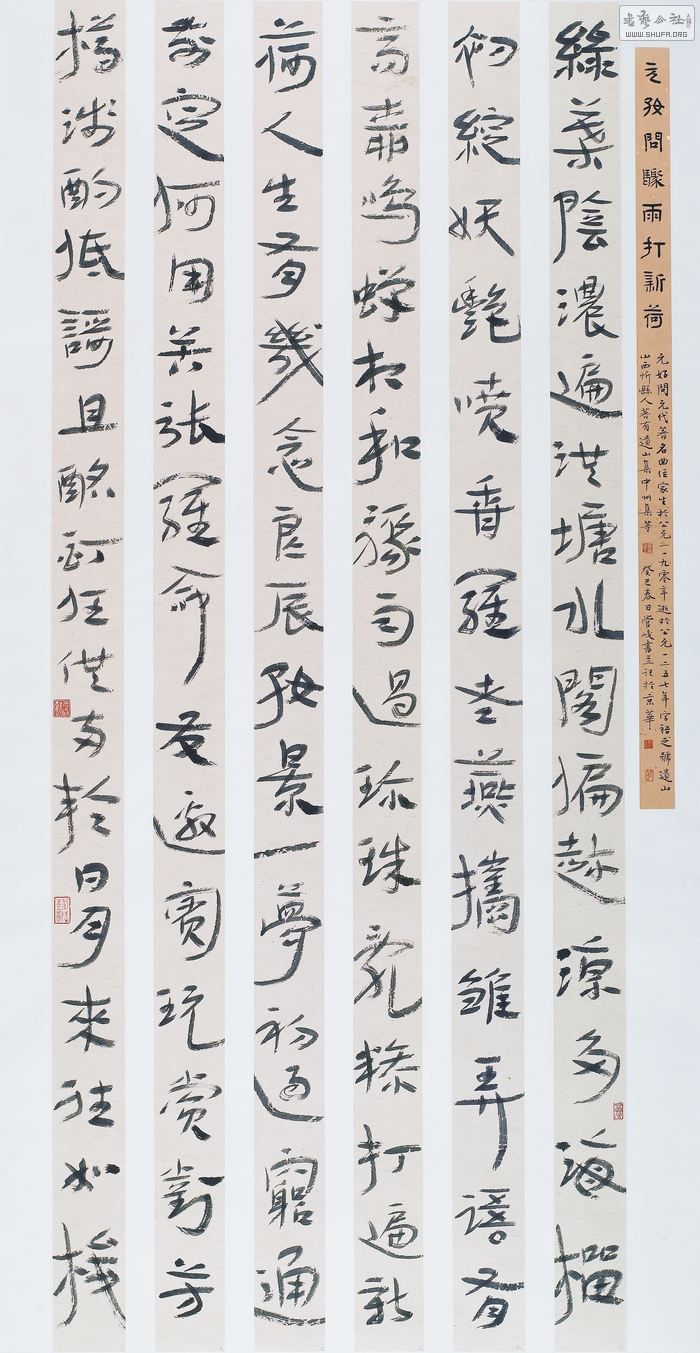 書藝公社
WWW.SHUFA.ORG
元好問驟雨打新荷
元好問元代著名曲作家生於公元一一九零年逝於公元一二五七年字裕之號遺山
山西忻縣人著有遺山集中州集等 癸巳春日管峻書並記於京華
綠葉陰濃遍池塘水閣偏趂涼多海榴
初綻妖艷噴香羅老燕攜雛弄語有
高柳鳴蟬相和驟雨過珍珠亂糝打遍新
荷人生有幾念良辰好景一夢初過窮通
前定何用苦張羅命友邀賓玩賞對芳
樽淺酌低謌且酩酊任兩輪日月來往如梭